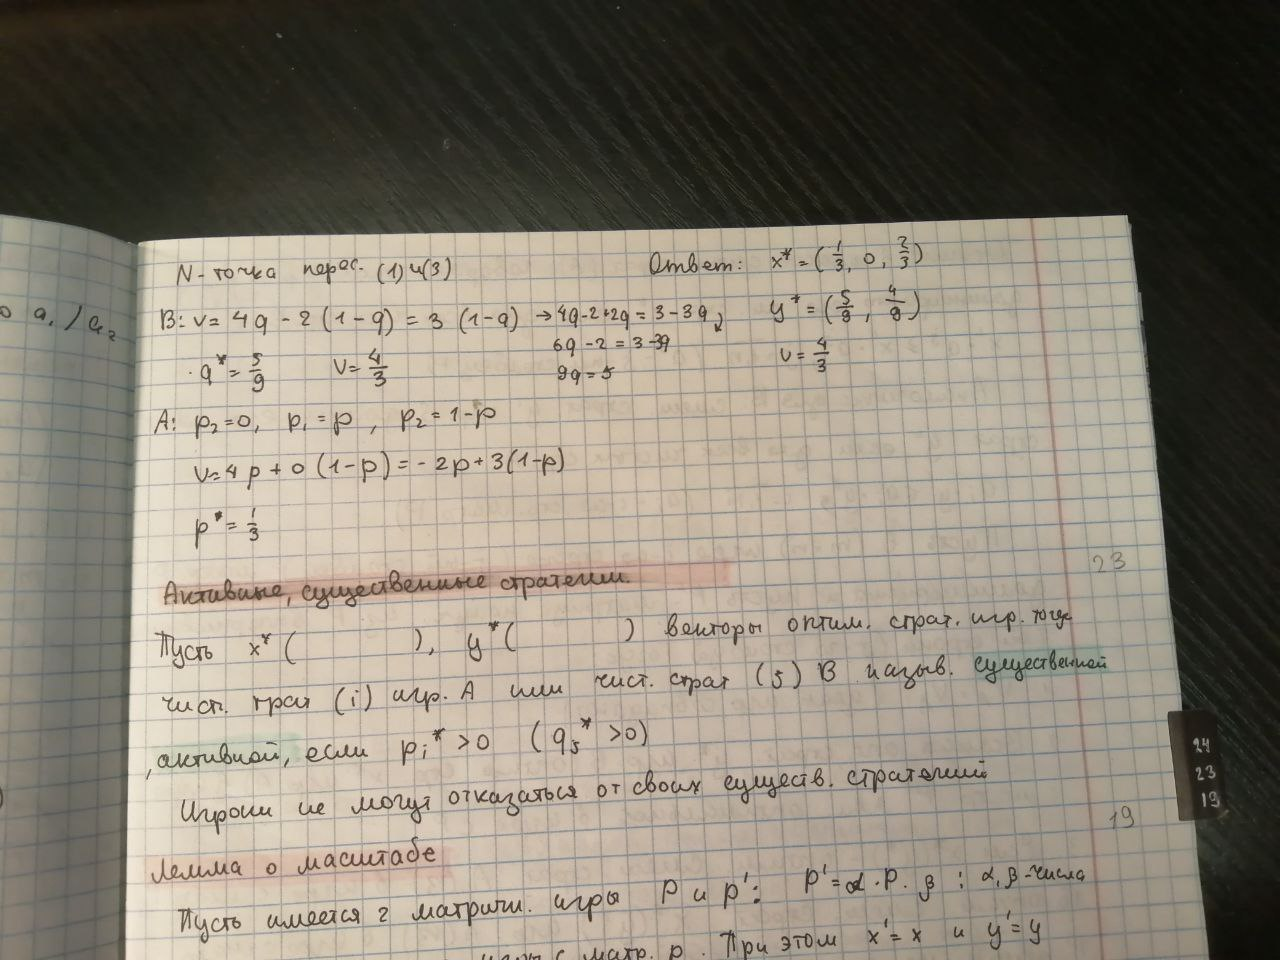 N - точка перес. (1) и (3)
Ответ: x* = (1/3, 0, 2/3)
B: v = 4q - 2 (1-q) = 3 (1-q) → 4q-2+2q = 3-3q
y* = (5/9, 4/9)
6q-2 = 3-3q
q* = 5/9 v = 4/3
9q = 5
v = 4/3
A: p₂=0, p₁=p, p₂=1-p
v=4p+0(1-p) = -2p+3(1-p)
p* = 1/3
Активные, существенные стратегии.
23
Пусть x* ( ), y* ( ) векторы оптим. страт. игр. тогда
чист. трат (i) игр. A или чист. страт (5) B назыв. существенной
, активной, если pᵢ* >0 (q₅* >0)
Игроки не могут отказаться от своих существ. стратегий
19
Лемма о масштабе
Пусть имеется 2 матричн. игры P и P': P' = α · P · β : α, β - числа
с матр. p. При этом x' = x и y' = y
о a₁ / a₂
24
23
19